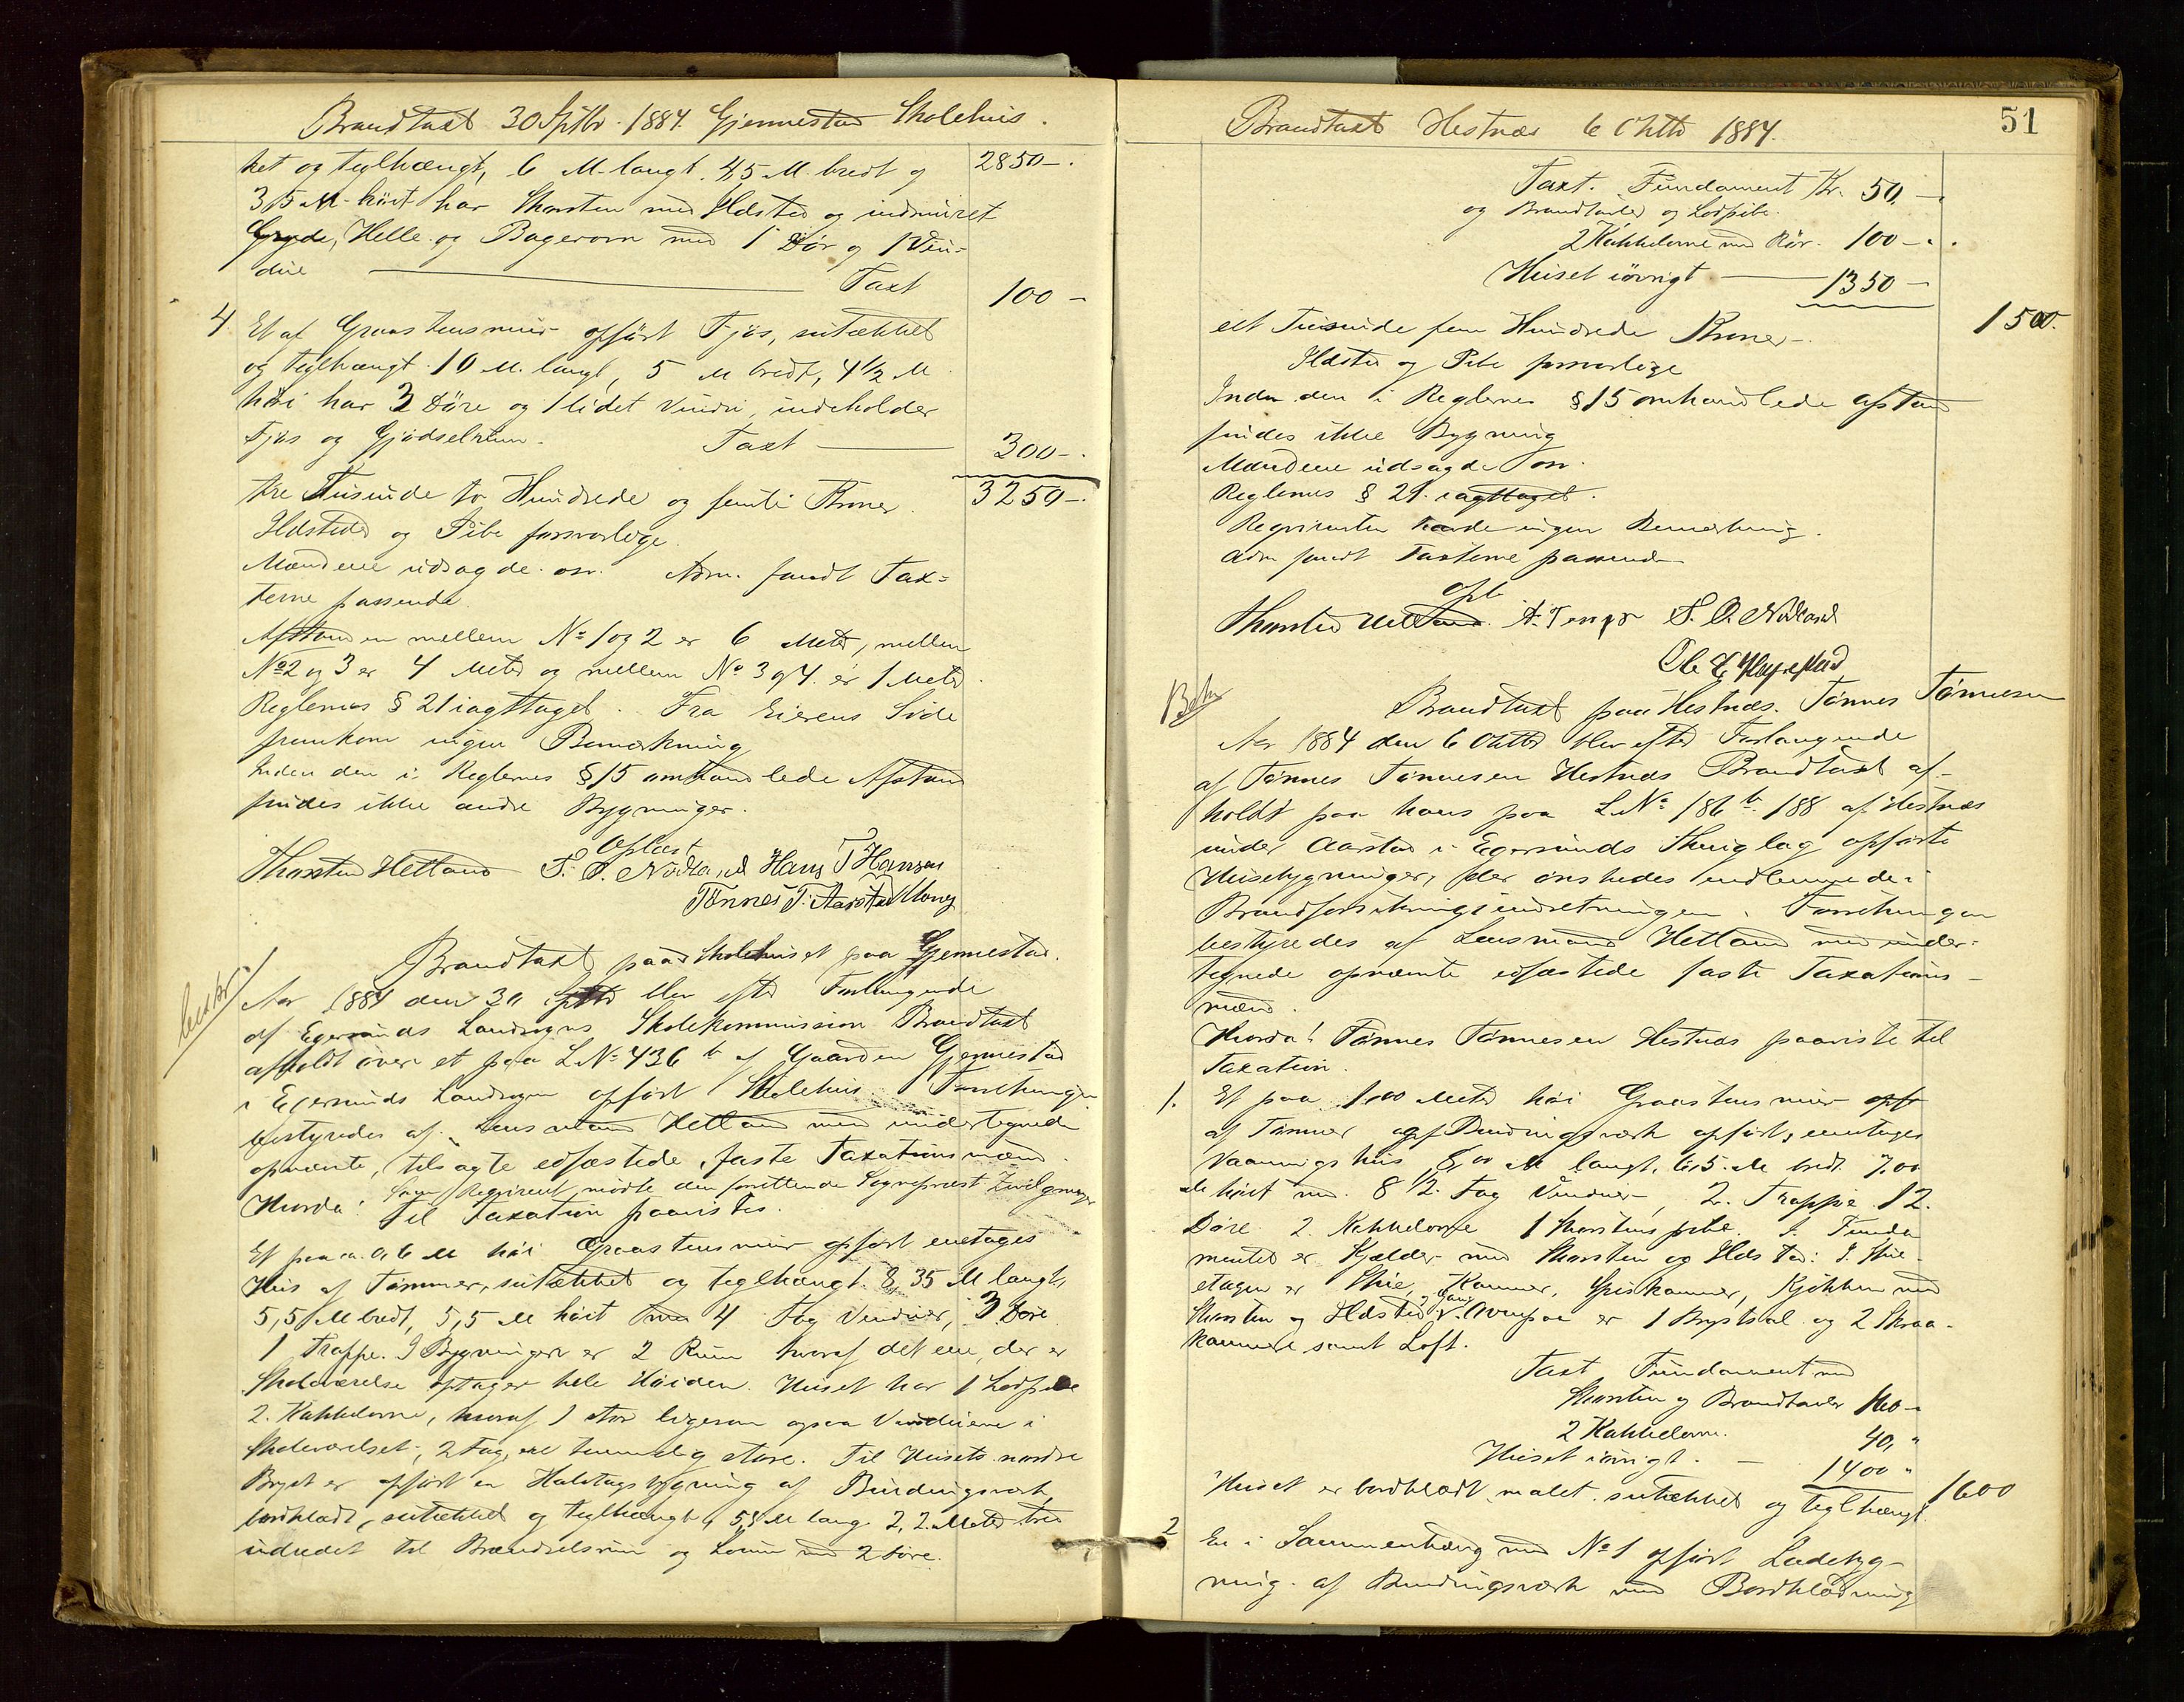 Brandtaxt 30 Septbr. 1884. Gjennestad Skolehus.
ket og teglhængt, 6 M. langt, 4,5 M. bredt og 2850-.
3,5 M. høit har Skorsten med Ildsted og indmuret
Gryde, Helle og Bagerovn med 1 Dør og 1 Vin-
due Taxt 100 -
4 Et af Graastensmur opført Fjøs, sutækket
og teglhængt 10 M. langt, 5 M bredt, 4 1/2 M
høi har 3 Døre og 1 lidet Vindu, indeholder
Fjøs og Gjødselrum. Taxt 300-.
tre Tusinde to Hundrede og femti Kroner. 3250-.
Ildsteder og Pibe forsvarlige.
Mændene udsagde osv. Adm. fandt Tax=
terne passende.
Afstanden mellem No 1 og 2 er 6 Meter, mellem
No 2 og 3 er 4 Meter og mellem No 3 og 4 er 1 Meter.
Reglernes § 21 iagttaget. Fra Eierens Side
fremkom ingen Bemærkning
Inden den i Reglernes § 15 omhandlede Afstand
findes ikke andre Bygninger.
Oplæst
Thorsten Hetland S. O. Nodland Hans T Hansen
Tønnes T. Aarstad Mong
Brandtaxt paa Skolehuset paa Gjennestad.
Aar 1884 den 30 Septbr blev efter Forlangende
af Egersunds Landsogns Skolekommission Brandtaxt
afholdt over et paa L No 436 b af Gaarden Gjennestad
i Egersunds Landsogn opført Skolehus. Forretningen
bestyredes af Lensmand Hetland med undertegnede
opnævnte, tilsagte edfæstede, faste Taxationsmænd.
Hvorda! Som Rekvirent mødte den forrettende Sognepræst
Til Taxation paavistes.
Et paa ca. 0,6 M høi Graastensmur opført enetages
Hus af Tømmer, sutækket og teglhængt 8,35 M langt,
5,5 M bredt, 5,5 M høit med 4 Fag Vinduer, 3 Døre
1 Trappe. I Bygningen er 2 Rum hvoraf det ene, der er
Skoleværelse optager hele Høiden. Huset har 1 Lodpibe
2 Kakkelovne, hvoraf 1 stor ligesom ogsaa Vinduerne i
Skoleværelset, 2 Fag, ere temmelig store. Til Husets nordre
Bryst er opført en Halvtagsbygning af Bindingsverk,
bordklædt, sutækket og teglhængt, 5,5 M lang 2,2 Meter bred
indredet til Brændselsrum og Locum med 2 Døre.
51
Brandtaxt Hestnæs 6 Oktbr 1884.
Taxt. Fundament Kr. 50,-.
og Brandtavler og Lodpibe.
2 Kakkelovne med Rør. 100-.
Huset iøvrigt 1350-
eet Tusinde fem Hundrede Kroner-. 1500.
Ildsted og Pibe forsvarlige
Inden den i Reglernes § 15 omhandlede Afstand
findes ikke Bygning
Mændene udsagde osv.
Reglernes § 21. iagttaget.
Rekvirenten havde ingen Bemærkning.
Adm fandt Taxterne passende
Opl.
Thorsten Hetland. S. O. Nodland
Brandtaxt paa Hestnæs. Tønnes Tønnesen
Aar 1884 den 6 Oktbr blev efter Forlangende
af Tønnes Tønnesen Hestnæs Brandtaxt af-
holdt paa hans paa L No 186 b. 188 af Hestnæs
under Aarstad i Egersunds Thinglag opførte
Husebygninger, der ønskedes indlemmede i
Brandforsikringsindretningen. Forretningen
bestyredes af Lensmand Hetland med under-
tegnede opnævnte edfæstede faste Taxations-
mænd.
Hvorda! Tønnes Tønnesen Hestnæs paaviste til
Taxation.
1. Et paa 1,00 Meter høi Graastensmur opf
af Tømmer og Bindingsverk opført, enetages
Vaaningshus 8,00 M langt, 6,5 M bredt 7,00
M høit med 8 1/2 Fag Vinduer, 2 Trapper 12
Døre 2 Kakkelovne 1 Skorstenspibe. I Funda
mentet er Kjælder med Skorsten og Ildsted: I Stue-
etagen er Stue, Kammer, Spiskammer, Kjøkken med
Skorsten og Ildsted og Gang. Ovenpaa er 1 Brystsal og 2 Skraa-
kammere samt Loft.
Taxt Fundament med
Skorsten og Brandtavler 160-
2 Kakkelovne. 40,"
Huset iøvrigt. - 1400 "
Huset er bordklædt malet sutækket og teglhængt. 1600
2 En i Sammenhæng med No 1 opført Ladebyg-
ning af Bindingsverk med Bordklædning